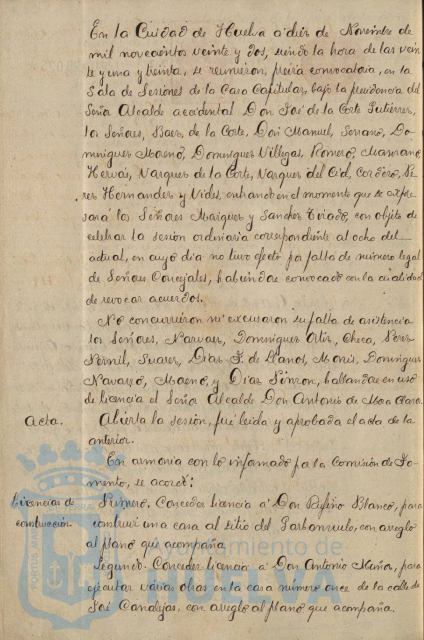 En la Ciudad de Huelva a diez de Noviembre de
mil novecientos veinte y dos, siendo la hora de las vein
te y una y treinta, se reunieron, previa convocatoria, en la
Sala de Sesiones de la Casa Capitular, bajo la presidencia del
Señor Alcalde accidental Don José de la Corte Gutiérrez,
los Señores, Baez, de la Corte, Don Manuel, Serrano, Do-
minguez Moreno, Dominguez Villegas, Romero, Manzano
Hervás, Vazquez de la Corte, Vazquez del Cid, Cordero,
res Hernandez y Vides, entrando en el momento que se expre
sará los Señores Marquez y Sanchez Tirado, con objeto de
celebrar la sesión ordinaria correspondiente al ocho del
actual, en cuyo día no tuvo efecto por falta de número legal
de Señores Concejales, habiendose convocado con la cualidad
de revocar acuerdos.
No concurrieron ni excusaron su falta de asistencia
los Señores, Narvaez, Dominguez Ortiz, Checa, Perez
Pernil, Suarez, Diaz F. de Llanos, Monis, Dominguez
Navarro, Moreno, y Diaz Pinzon, hallandose en uso
de licencia el Señor Alcalde Don Antonio de Mora Claros.
Acta. Abierta la sesión, fué leida y aprobada el acta de la
anterior.
En armonia con lo informado por la Comisión de Fo-
mento, se acordó:
Licencias de construcción. Primero. Conceder licencia a Don Rufino Blanco, para
construir una casa al sitio del Garbanzuelo, con arreglo
al plano que acompaña.
Segundo. Conceder licencia a Don Antonio para
ejecutar varias obras en la casa número once de la calle de
José Canalejas, con arreglo al plano que acompaña.
Ayuntamiento de
HUELVA